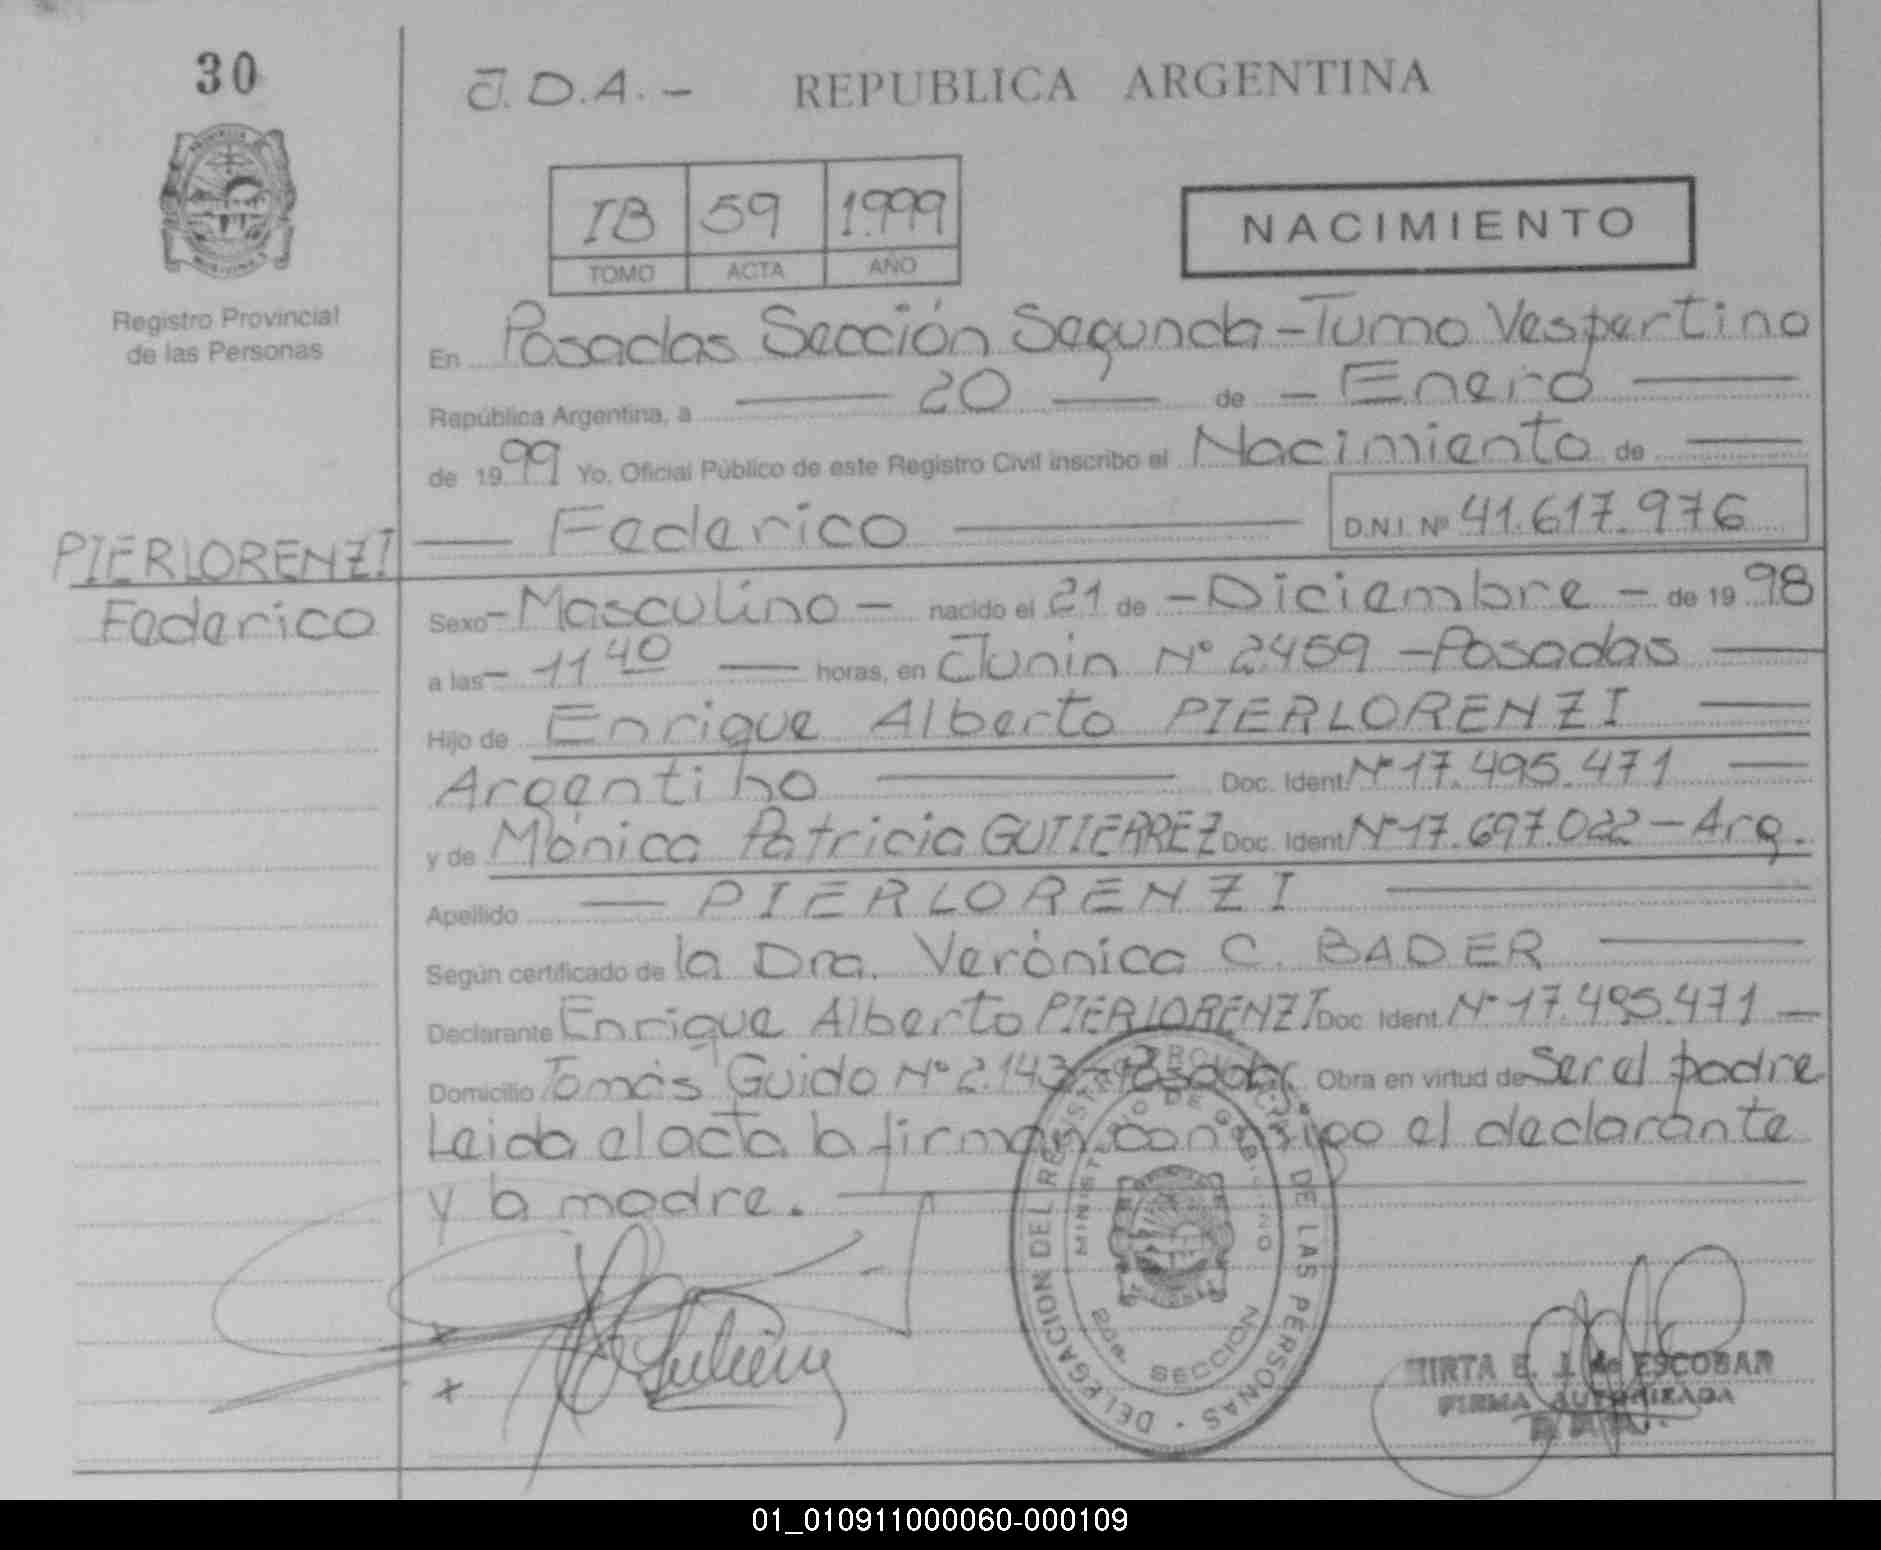 30
J.D.A.- REPUBLICA ARGENTINA
IB 59 1.999
TOMO ACTA AÑO
NACIMIENTO
Registro Provincial
de las Personas
En Posadas Sección Segunda - Turno Vespertino
República Argentina, a 20 de - Enero
de 19 99 Yo, Oficial Público de este Registro Civil inscribo el Nacimiento de
Federico D.N.I. Nº 41.617.976
PIERLORENZI
Federico
Sexo - Masculino - nacido el 21 de - Diciembre - de 19 98
a las - 11 40 horas, en Junin Nº 2459 - Posadas
Hijo de Enrique Alberto PIERLORENZI
Argentino Doc. Ident. Nº 17.495.471
y de Mónica Patricia GUTIERREZ Doc. Ident. Nº 17.697.022 - Arg.
Apellido PIERLORENZI
Según certificado de la Dra. Verónica C. BADER
Declarante Enrique Alberto PIERLORENZI Doc. Ident. Nº 17.495.471 -
Domicilio Tomás Guido Nº 2.143 - Posadas Obra en virtud de Ser el padre
Leida el acta la firman conmigo el declarante
y la madre.
DELEGACION DEL REGISTRO PROVINCIAL DE LAS PERSONAS
MINISTERIO DE GOBIERNO
2da. SECCION
MIRTA E. J. de ESCOBAR
FIRMA AUTORIZADA
01_010911000060-000109